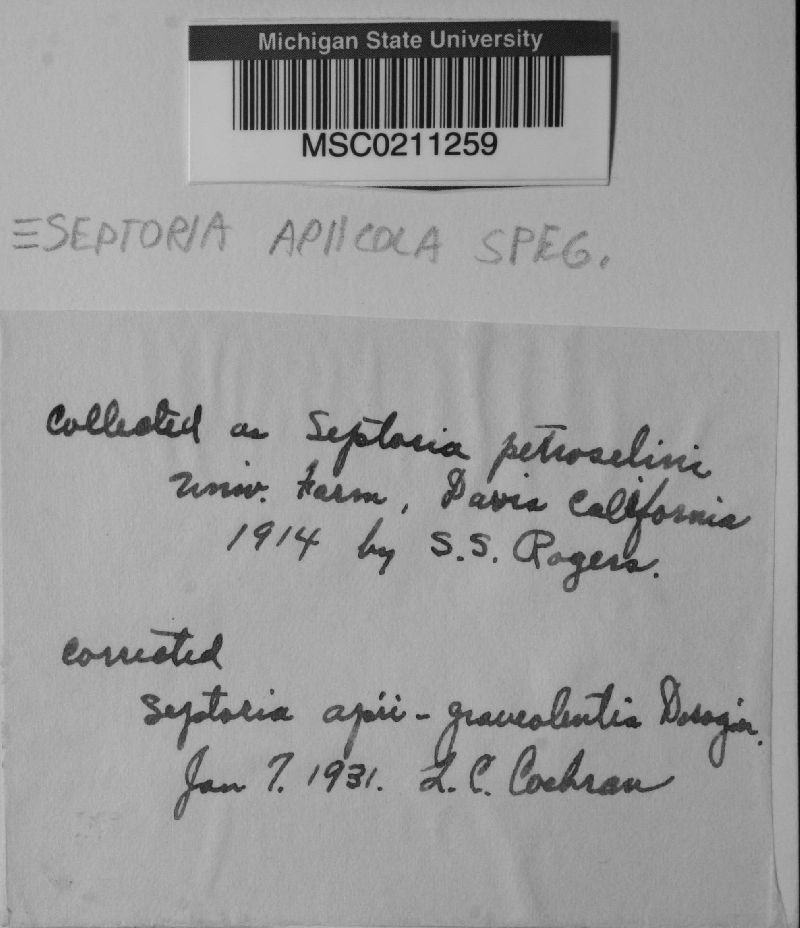 Michigan State University
MSC0211259
≡SEPTORIA APIICOLA SPEG.
Collected as Septoria petroselini
Univ. Farm, Davis California
1914 by S.S. Rogers.
Corrected
Septoria apii-graveolentis Dorogin.
Jan 7. 1931. L.C. Cochran